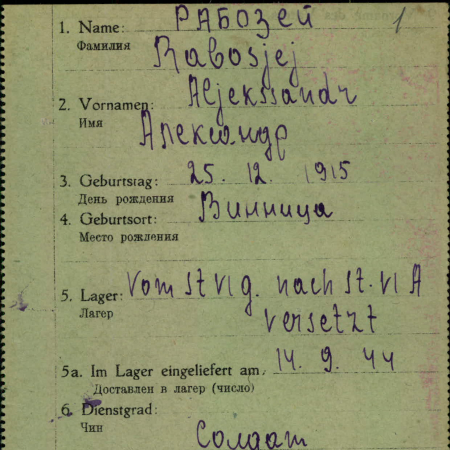 1
1. Name: РАБОЗЕЙ
Фамилия
Rabosjej
2. Vornamen: Aljekssandr
Имя
Александр
3. Geburtstag: 25. 12. 1915
День рождения
4. Geburtsort: Винница
Место рождения
5. Lager: Vom St VI g. nach St. VI A
Лагер
versetzt
5a. Im Lager eingeliefert am 14. 9. 44
Доставлен в лагер (число)
6. Dienstgrad:
Чин
Солдат